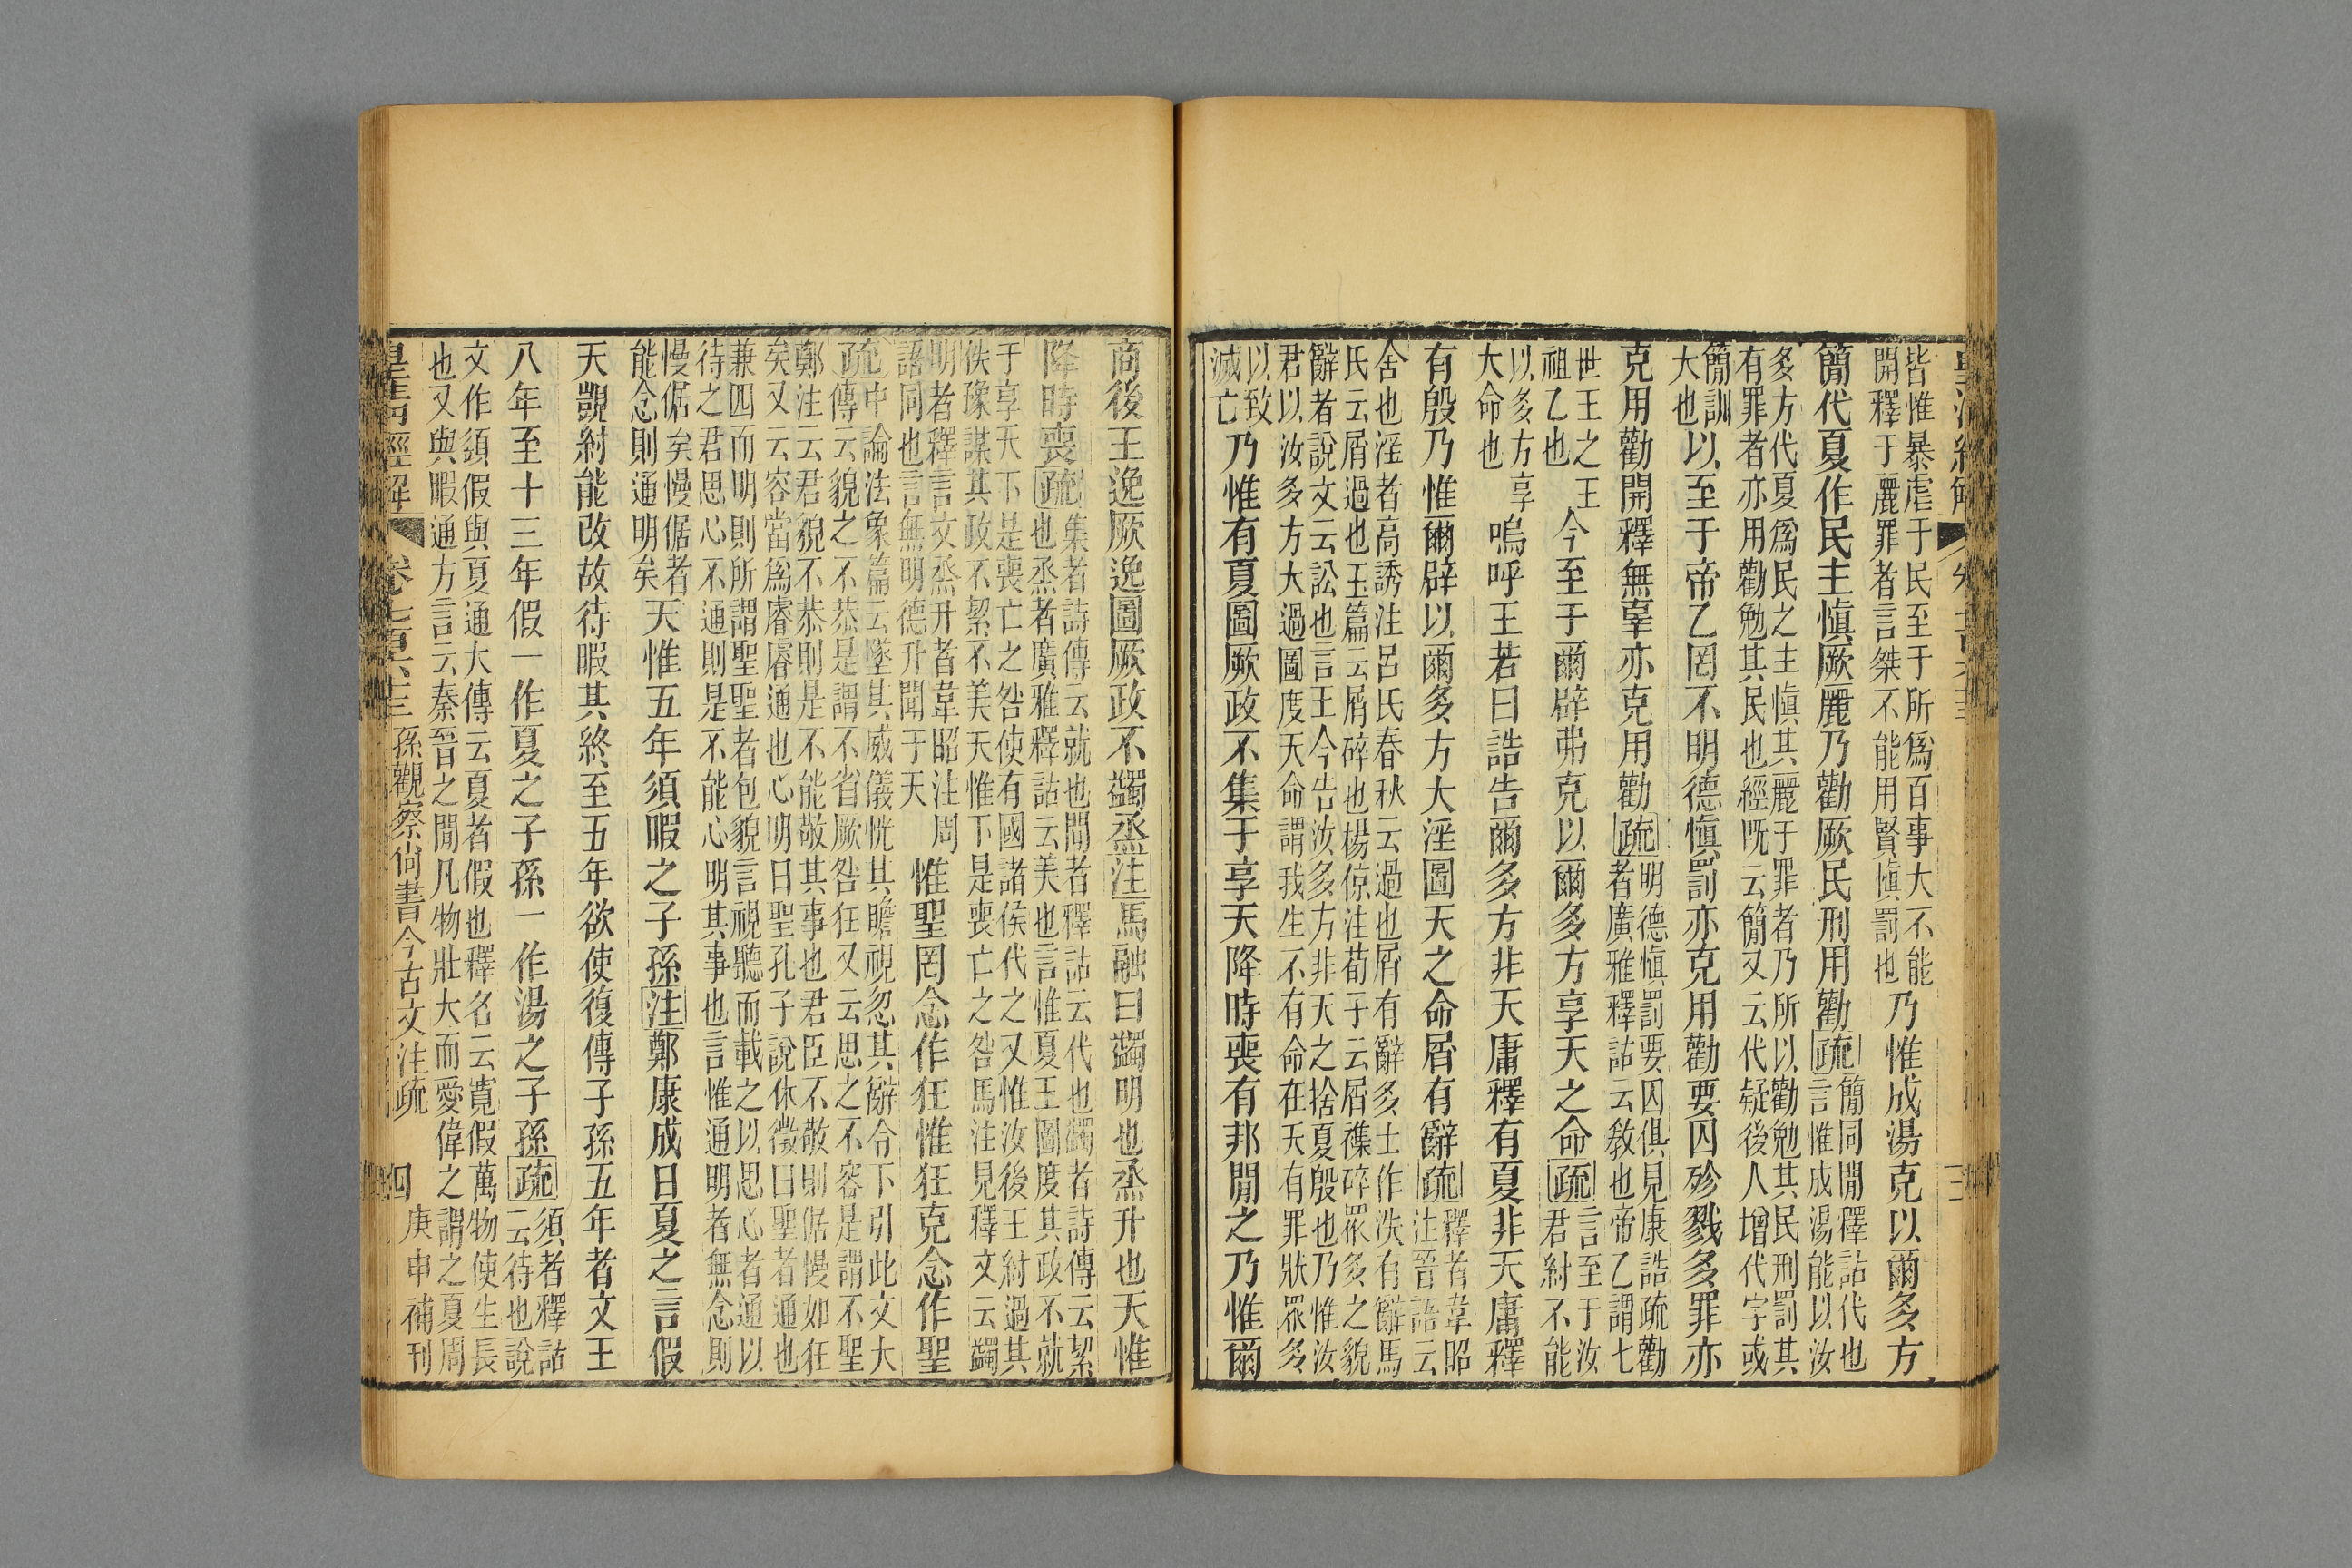 皆惟暴虐于民至于所爲百事大不能
開釋于麗罪者言桀不能用賢慎罰也
乃惟成湯克以爾多方
簡代夏作民主慎厥麗乃勸厥民刑用勸疏
簡同閒釋詁代也
言惟成湯能以汝
多方代夏爲民之主慎其麗于罪者乃所以勸勉其民刑罰其
有罪者亦用勸勉其民也經既云簡又云代疑後人增代字或
簡訓
大也
以至于帝乙罔不明德慎罰亦克用勸要囚殄戮多罪亦
克用勸開釋無辜亦克用勸疏
明德慎罰要囚俱見康誥疏勸
者廣雅釋詁云敎也帝乙謂七
世王之王
祖乙也
今至于爾辟弗克以爾多方享天之命疏
言至于汝
君紂不能
以多方享
大命也
嗚呼王若曰誥告爾多方非天庸釋有夏非天庸釋
有殷乃惟爾辟以爾多方大淫圖天之命屑有辭疏
釋者韋昭
注晉語云
舍也淫者高誘注呂氏春秋云過也屑有辭多士作泆有辭馬
氏云屑過也玉篇云屑碎也楊倞注荀子云屑襍碎眾多之貌
辭者說文云訟也言王今告汝多方非天之捨夏殷也乃惟汝
君以汝多方大過圖度天命謂我生不有命在天有罪狀眾多
以致
滅亡
乃惟有夏圖厥政不集于享天降時喪有邦閒之乃惟爾
商後王逸厥逸圖厥政不蠲烝注馬融曰蠲明也烝升也天惟
降時喪疏
集者詩傳云就也閒者釋詁云代也蠲者詩傳云絜
也烝者廣雅釋詁云美也言惟夏王圖度其政不就
于享天下是喪亡之咎使有國諸侯代之又惟汝後王紂過其
佚豫謀其政不絜不美天惟下是喪亡之咎馬注見釋文云蠲
明者釋言文烝升者韋昭注周
語同也言無明德升聞于天
惟聖罔念作狂惟狂克念作聖
疏
中論法象篇云墜其威儀恍其瞻視忽其辭令下引此文大
傳云貌之不恭是謂不省厥咎狂又云思之不容是謂不聖
鄭注云君貌不恭則是不能敬其事也君臣不敬則倨慢如狂
矣又云容當爲睿睿通也心明曰聖孔子說休徵曰聖者通也
兼四而明則所謂聖聖者包貌言視聽而載之以思心者通以
待之君思心不通則是不能心明其事也言惟通明者無念則
慢倨矣慢倨者
能念則通明矣
天惟五年須暇之子孫注鄭康成曰夏之言假
天覬紂能改故待暇其終至五年欲使復傳子孫五年者文王
八年至十三年假一作夏之子孫一作湯之子孫疏
須者釋詁
云待也說
文作䇓假與夏通大傳云夏者假也釋名云寬假萬物使生長
也又與暇通方言云秦晉之閒凡物壯大而愛偉之謂之夏周
皇淸經解 卷七百六十三 孫觀察尚書今古文注疏 四 庚申補刊